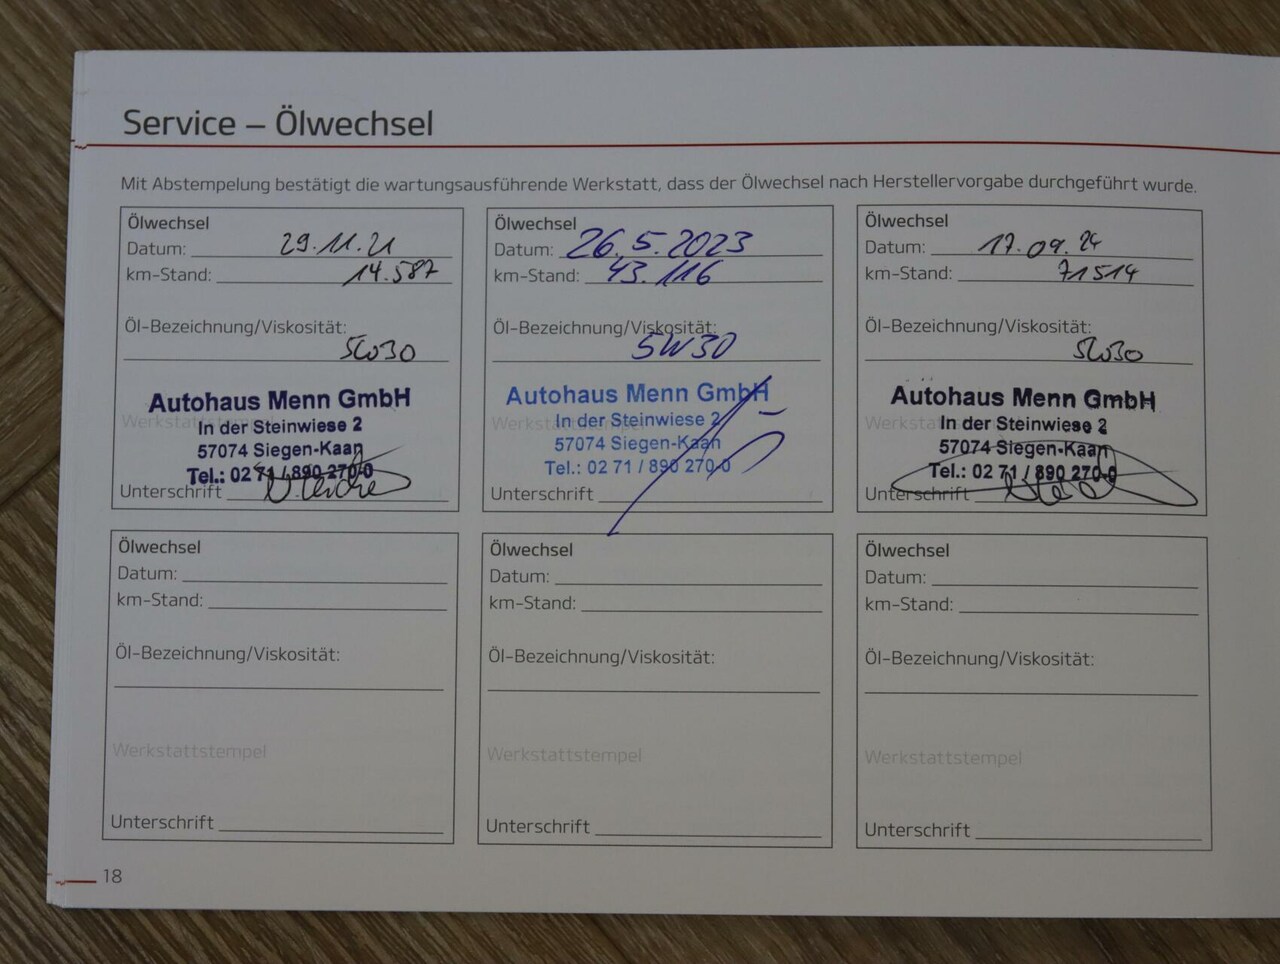 Service – Ölwechsel
Mit Abstempelung bestätigt die wartungsausführende Werkstatt, dass der Ölwechsel nach Herstellervorgabe durchgeführt wurde.
Ölwechsel
Datum: 29.11.21
km-Stand: 14.587
Öl-Bezeichnung/Viskosität:
5W30
Werkstattstempel
Autohaus Menn GmbH
In der Steinwiese 2
57074 Siegen-Kaan
Tel.: 02 71 / 890 270-0
Unterschrift
Ölwechsel
Datum: 26.5.2023
km-Stand: 43.116
Öl-Bezeichnung/Viskosität:
5W30
Werkstattstempel
Autohaus Menn GmbH
In der Steinwiese 2
57074 Siegen-Kaan
Tel.: 02 71 / 890 270-0
Unterschrift
Ölwechsel
Datum: 17.09.24
km-Stand: 71514
Öl-Bezeichnung/Viskosität:
5W30
Autohaus Menn GmbH
In der Steinwiese 2
57074 Siegen-Kaan
Tel.: 02 71 / 890 270-0
Unterschrift
Ölwechsel
Datum:
km-Stand:
Öl-Bezeichnung/Viskosität:
Werkstattstempel
Unterschrift
Ölwechsel
Datum:
km-Stand:
Öl-Bezeichnung/Viskosität:
Werkstattstempel
Unterschrift
Ölwechsel
Datum:
km-Stand:
Öl-Bezeichnung/Viskosität:
Werkstattstempel
Unterschrift
18